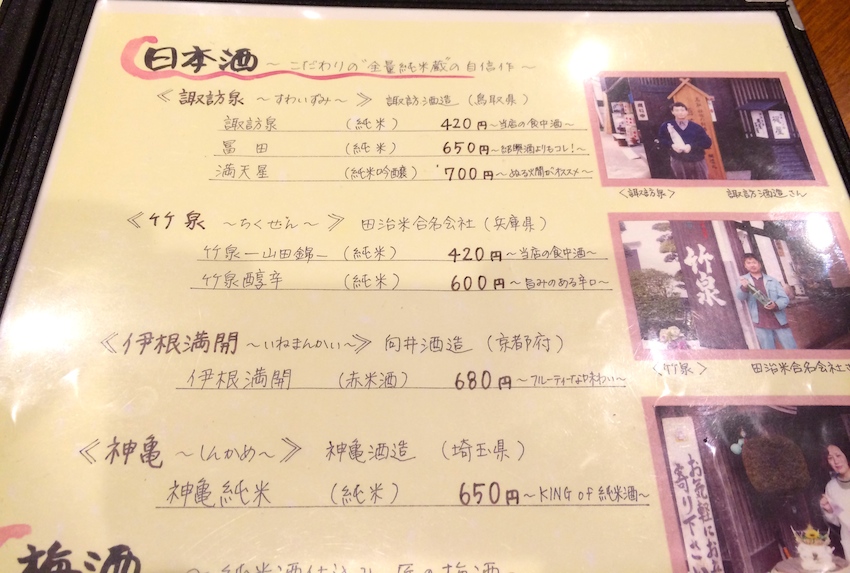 日本酒 ～こだわりの"全量純米蔵"の自信作～
≪諏訪泉 ～すわいずみ～≫ 諏訪酒造（鳥取県）
諏訪泉 （純米） 420円～当店の食中酒～
冨田 （純米） 650円
満天星 （純米吟醸） 700円～ぬる火間がオススメ～
〈諏訪泉〉 諏訪酒造さん
≪竹泉 ～ちくせん～≫ 田治米合名会社（兵庫県）
竹泉―山田錦― （純米） 420円～当店の食中酒～
竹泉醇辛 （純米） 600円～旨みのある辛口～
竹泉
〈竹泉〉 田治米合名会社さ
≪伊根満開 ～いねまんかい～≫ 向井酒造（京都府）
伊根満開 （赤米酒） 680円～フルーティーな味わい～
≪神亀 ～しんかめ～≫ 神亀酒造（埼玉県）
神亀純米 （純米） 650円～KING of 純米酒～
お気軽にお
寄り下さい
梅酒 ～純米酒仕込み 匠の梅酒～